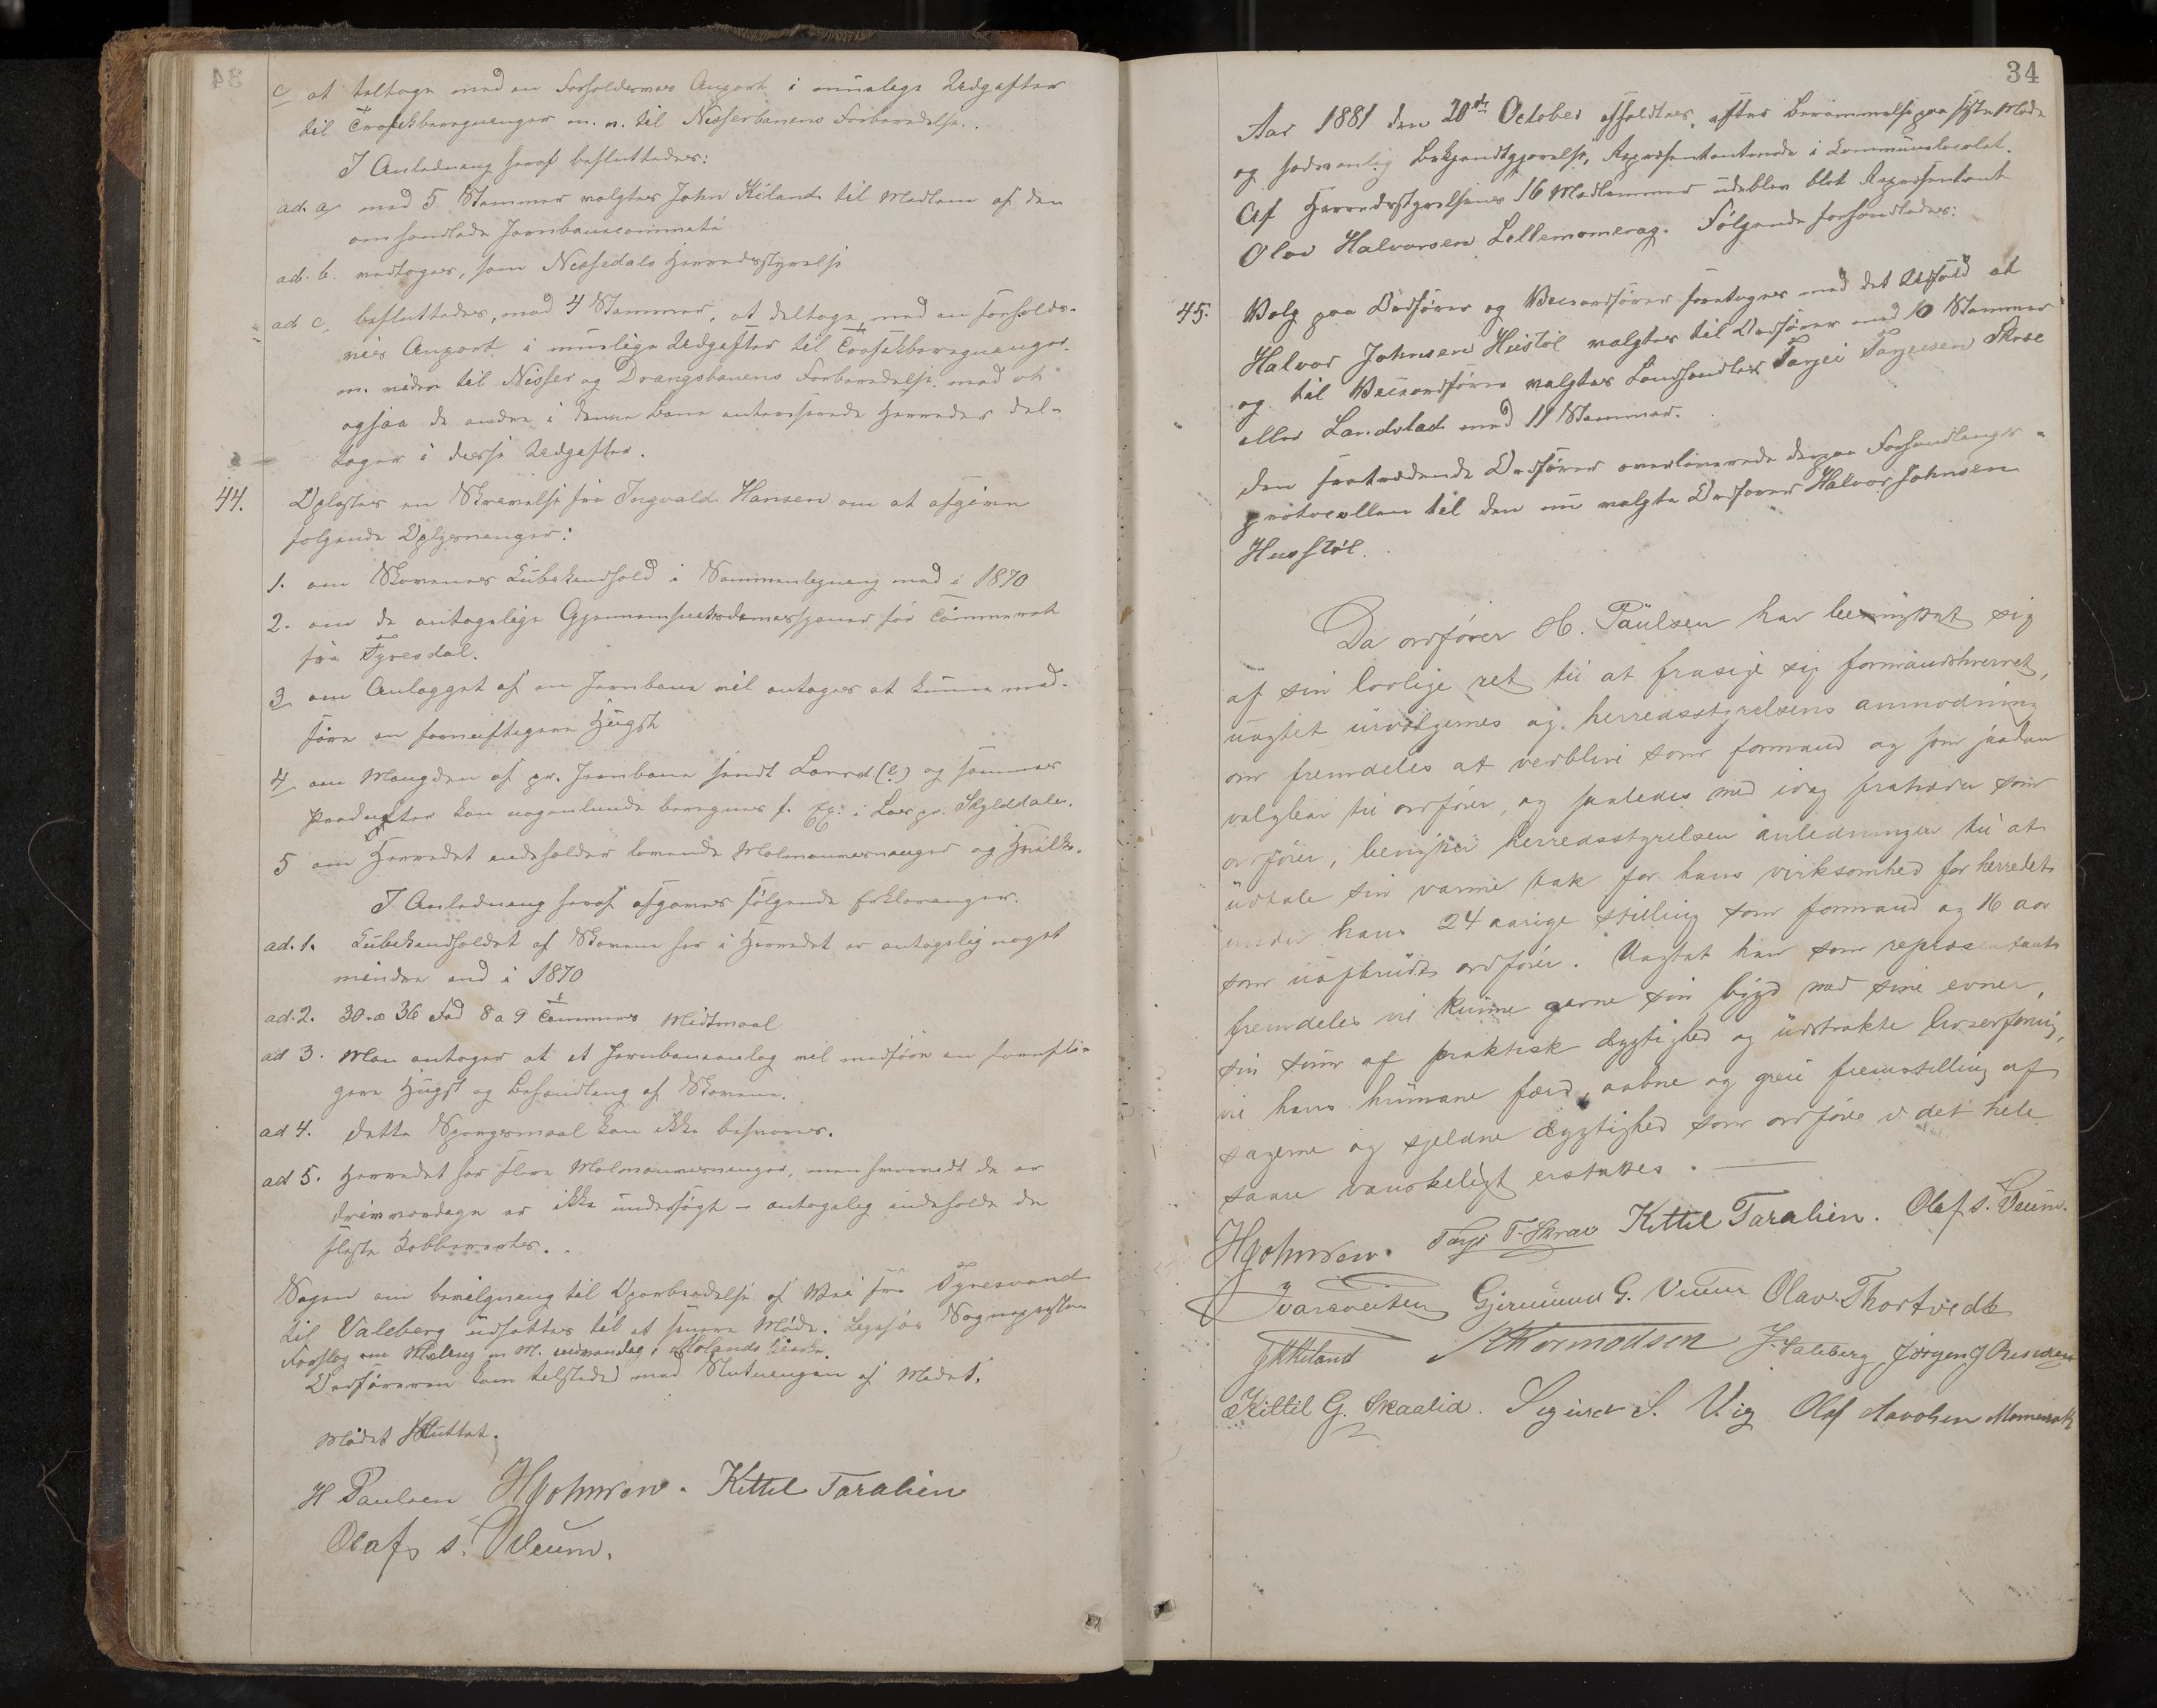 c at deltage med en forholdsmæs Anpart i mulige Udgifter
til Trafikberegninger m. m. til Nisserbanens Forberedelse.
I Anledning heraf besluttedes:
ad. a med 5 Stemmer valgtes John Kiland til Medlem af den
omhandlede Jernbanecommite
ad. b. vedtoges, som Nissedals Herredsstyrelse
ad c, besluttedes, med 4 Stemmer, at deltage med en forholds-
mæs Anpart i mulige Udgifter til Trafikberegninger
m. videre til Nisser og Drangsbanens Forberedelse, med at
ogsaa de andre i denne Bane interesserede Herreder del-
tager i disse Udgifter.
44. Oplæstes en Skrivelse fra Ingvald Hansen om at afgive
følgende Oplysninger:
1. om Skovenes Kubikindhold i Sammenligning med i 1870
2. om de antagelige Gjennemsnitsdimensjoner for Tømmeret
fra Fyresdal.
3 om Anlægget af en Jernbane vil antages at kunne med-
føre en fornuftigere Hugst
4 om Mængden af pr. Jernbane sendt Lavred (?) og samme
Producter kan nogenlunde beregnes f. Ex: i Læs pr. Skylddaler.
5 om Herredet indeholder lovende Malmanvisninger og Hvilke.
I Anledning heraf afgaves følgende Erklæringer.
ad. 1. Kubikindholdet af Skovene her i Herredet er antagelig noget
mindre end i 1870
ad. 2. 30 a 36 Fod 8 a 9 Tommers Midtmaal
ad 3. Man antager at et Jernbaneanlæg vil medføre en fornufti-
gere Hugst og Behandling af Skovene.
ad 4. Dette Spørgsmaal kan ikke besvares.
ad 5. Herredet har flere Malmanvisninger, men hvorvidt de er
drivværdige er ikke undersøgt – antagelig indeholde de
fleste Kobberertz.
Sagen om bevilgning til Oparbeidelse af Vei fra Fyresvand
til Valeberg udsattes til et senere Møde. Ligesaa Sognepresten
Forslag om Maling m M. indvendig i Molands Kirke.
Ordføreren kom tilstede ved Slutningen af Mødet.
Mødet sluttet.
H Paulsen HJohnsen. Kittel Taralien
Olaf s. Veum.
34
Aar 1881 den 20de October afholdtes, efter Berammelse paa siste Møde
og sædvanlig Bekjendtgjørelse, Repræsentantmøde i Kommunelocalet.
Af Herredsstyrelsens 16 Medlemmer udeblev blot Repræsentant
Olav Halvorsen Lillemomrag. Følgende forhandledes:
45. Valg paa Ordfører og Viceordfører foretoges med det Udfald at
Halvor Johnsen Husstøl valgtes til Ordfører med 10 Stemmer
og til Viceordfører valgtes Landhandler Tarjei Tarjeisen Skree
eller Landstad med 11 Stemmer.
Den fratrædende Ordfører overleverede derpaa Forhandlings-
protocollen til den nu valgte Ordfører Halvor Johnsen
Husstøl.
Da ordfører H. Paulsen har benyttet sig
af sin lovlige ret til at frasige sig formandshvervet,
uagtet urvælgernes og herredsstyrelsens anmodning
om fremdeles at vedblive som formand og som saadan
valgbar til ordfører, og saaledes med idag fratræder som
ordfører, benytter herredsstyrelsen anledningen til at
udtale sin varme tak for hans virksomhed for herredet
under hans 24 aarige stilling som formand og 16 aar
som uafbrudt ordfører. Uagtet han som repræsentant
fremdeles vil kunne gavne sin bygd med sine evner,
sin sum af praktisk dygtighed og udstrakte livserfaring,
vil hans humane færd, aabne og greie fremstilling af
sagerne og sjeldne dygtighed som ordfører i det hele
saare vanskeligt erstattes.
HJohnsen. Tarje T. Skree Kittel Taralien. Olaf s. Veum.
Ivarsveiten Gjermund G. Veum Olav Thortvedt
JKKiland KThormodsen J. Valeberg Jørgen J
Kittil G. Skaalid. Sigurd S. Vig Olaf Aavolsen Momrak